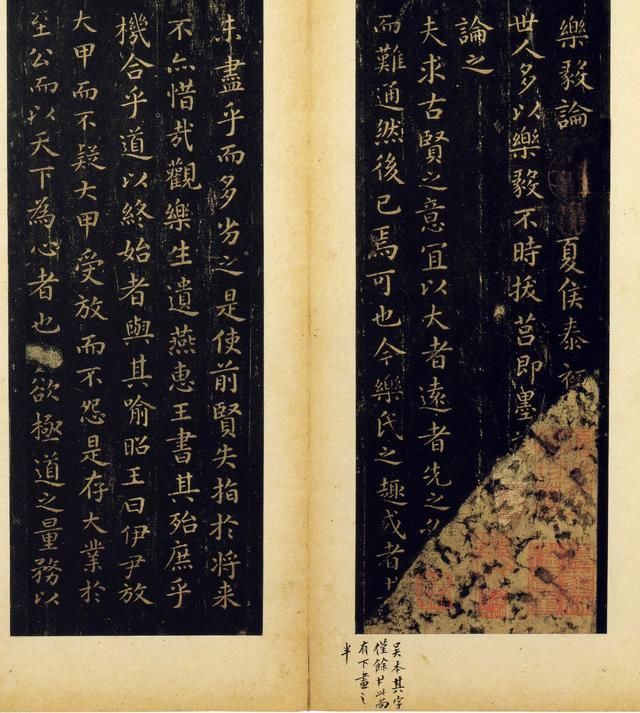 樂毅論 夏侯泰
世人多以樂毅不時拔莒即墨
論之
夫求古賢之意宜以大者遠者先之
而難通然後已焉可也今樂氏之趣或者
未盡乎而多劣之是使前賢失指於將来
不亦惜哉觀樂生遺燕惠王書其殆庶乎
機合乎道以終始者與其喻昭王曰伊尹放
大甲而不疑大甲受放而不怨是存大業於
至公而以天下為心者也欲極道之量務以
吴本其字
僅餘廿此尚
有下畫之
半